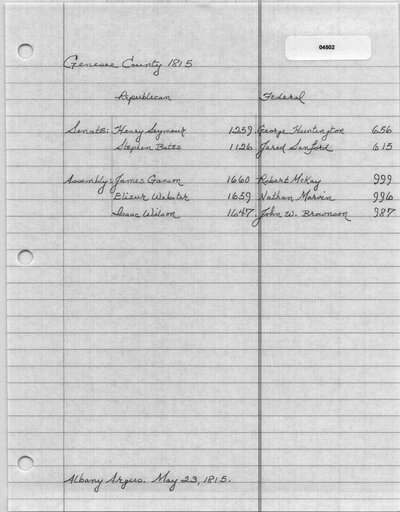 04502
Genesee County 1815
Republican Federal
Senate: Henry Seymour 1259 George Huntington 656
Stephen Bates 1126 Jared Sanford 615
Assembly: James Ganson 1660 Robert McKay 999
Elizur Webster 1659 Nathan Marvin 996
Isaac Wilson 1647 John W. Brownson 987
Albany Argus. May 23, 1815.